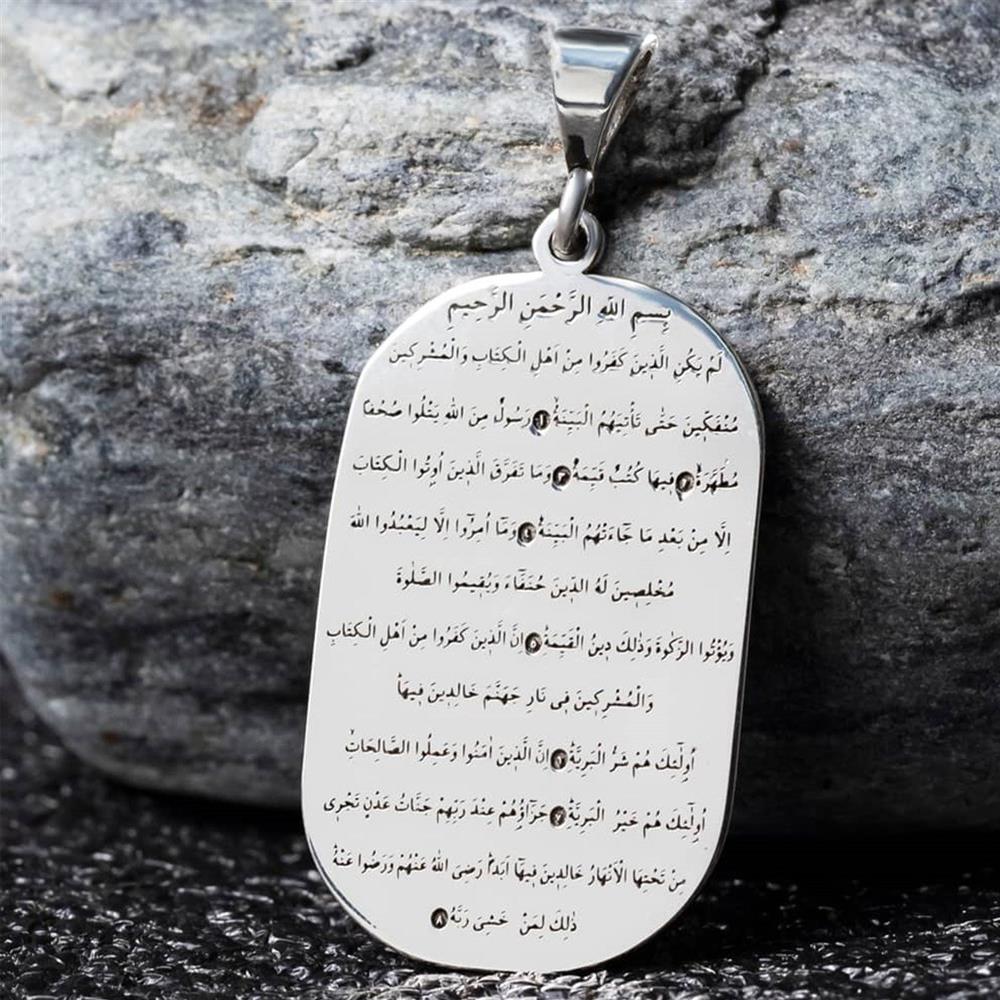 بِسْمِ اللّٰهِ الرَّحْمَنِ الرَّحِيمِ
لَمْ يَكُنِ الَّذٖينَ كَفَرُوا مِنْ اَهْلِ الْكِتَابِ وَالْمُشْرِكٖينَ
مُنْفَكّٖينَ حَتّٰى تَأْتِيَهُمُ الْبَيِّنَةُۙ ١ رَسُولٌ مِنَ اللّٰهِ يَتْلُوا صُحُفًا
مُطَهَّرَةًۙ ٢ فٖيهَا كُتُبٌ قَيِّمَةٌؕ ٣ وَمَا تَفَرَّقَ الَّذٖينَ اُوتُوا الْكِتَابَ
اِلَّا مِنْ بَعْدِ مَا جَٓاءَتْهُمُ الْبَيِّنَةُؕ ٤ وَمَٓا اُمِرُٓوا اِلَّا لِيَعْبُدُوا اللّٰهَ
مُخْلِصٖينَ لَهُ الدّٖينَ حُنَفَٓاءَ وَيُقٖيمُوا الصَّلٰوةَ
وَيُؤْتُوا الزَّكٰوةَ وَذٰلِكَ دٖينُ الْقَيِّمَةِؕ ٥ اِنَّ الَّذٖينَ كَفَرُوا مِنْ اَهْلِ الْكِتَابِ
وَالْمُشْرِكٖينَ فٖى نَارِ جَهَنَّمَ خَالِدٖينَ فٖيهَاؕ
اُولٰٓئِكَ هُمْ شَرُّ الْبَرِيَّةِؕ ٦ اِنَّ الَّذٖينَ اٰمَنُوا وَعَمِلُوا الصَّالِحَاتِۙ
اُولٰٓئِكَ هُمْ خَيْرُ الْبَرِيَّةِؕ ٧ جَزَٓاؤُهُمْ عِنْدَ رَبِّهِمْ جَنَّاتُ عَدْنٍ تَجْرٖى
مِنْ تَحْتِهَا الْاَنْهَارُ خَالِدٖينَ فٖيهَٓا اَبَدًاؕ رَضِىَ اللّٰهُ عَنْهُمْ وَرَضُوا عَنْهُؕ
ذٰلِكَ لِمَنْ خَشِىَ رَبَّهُ ٨